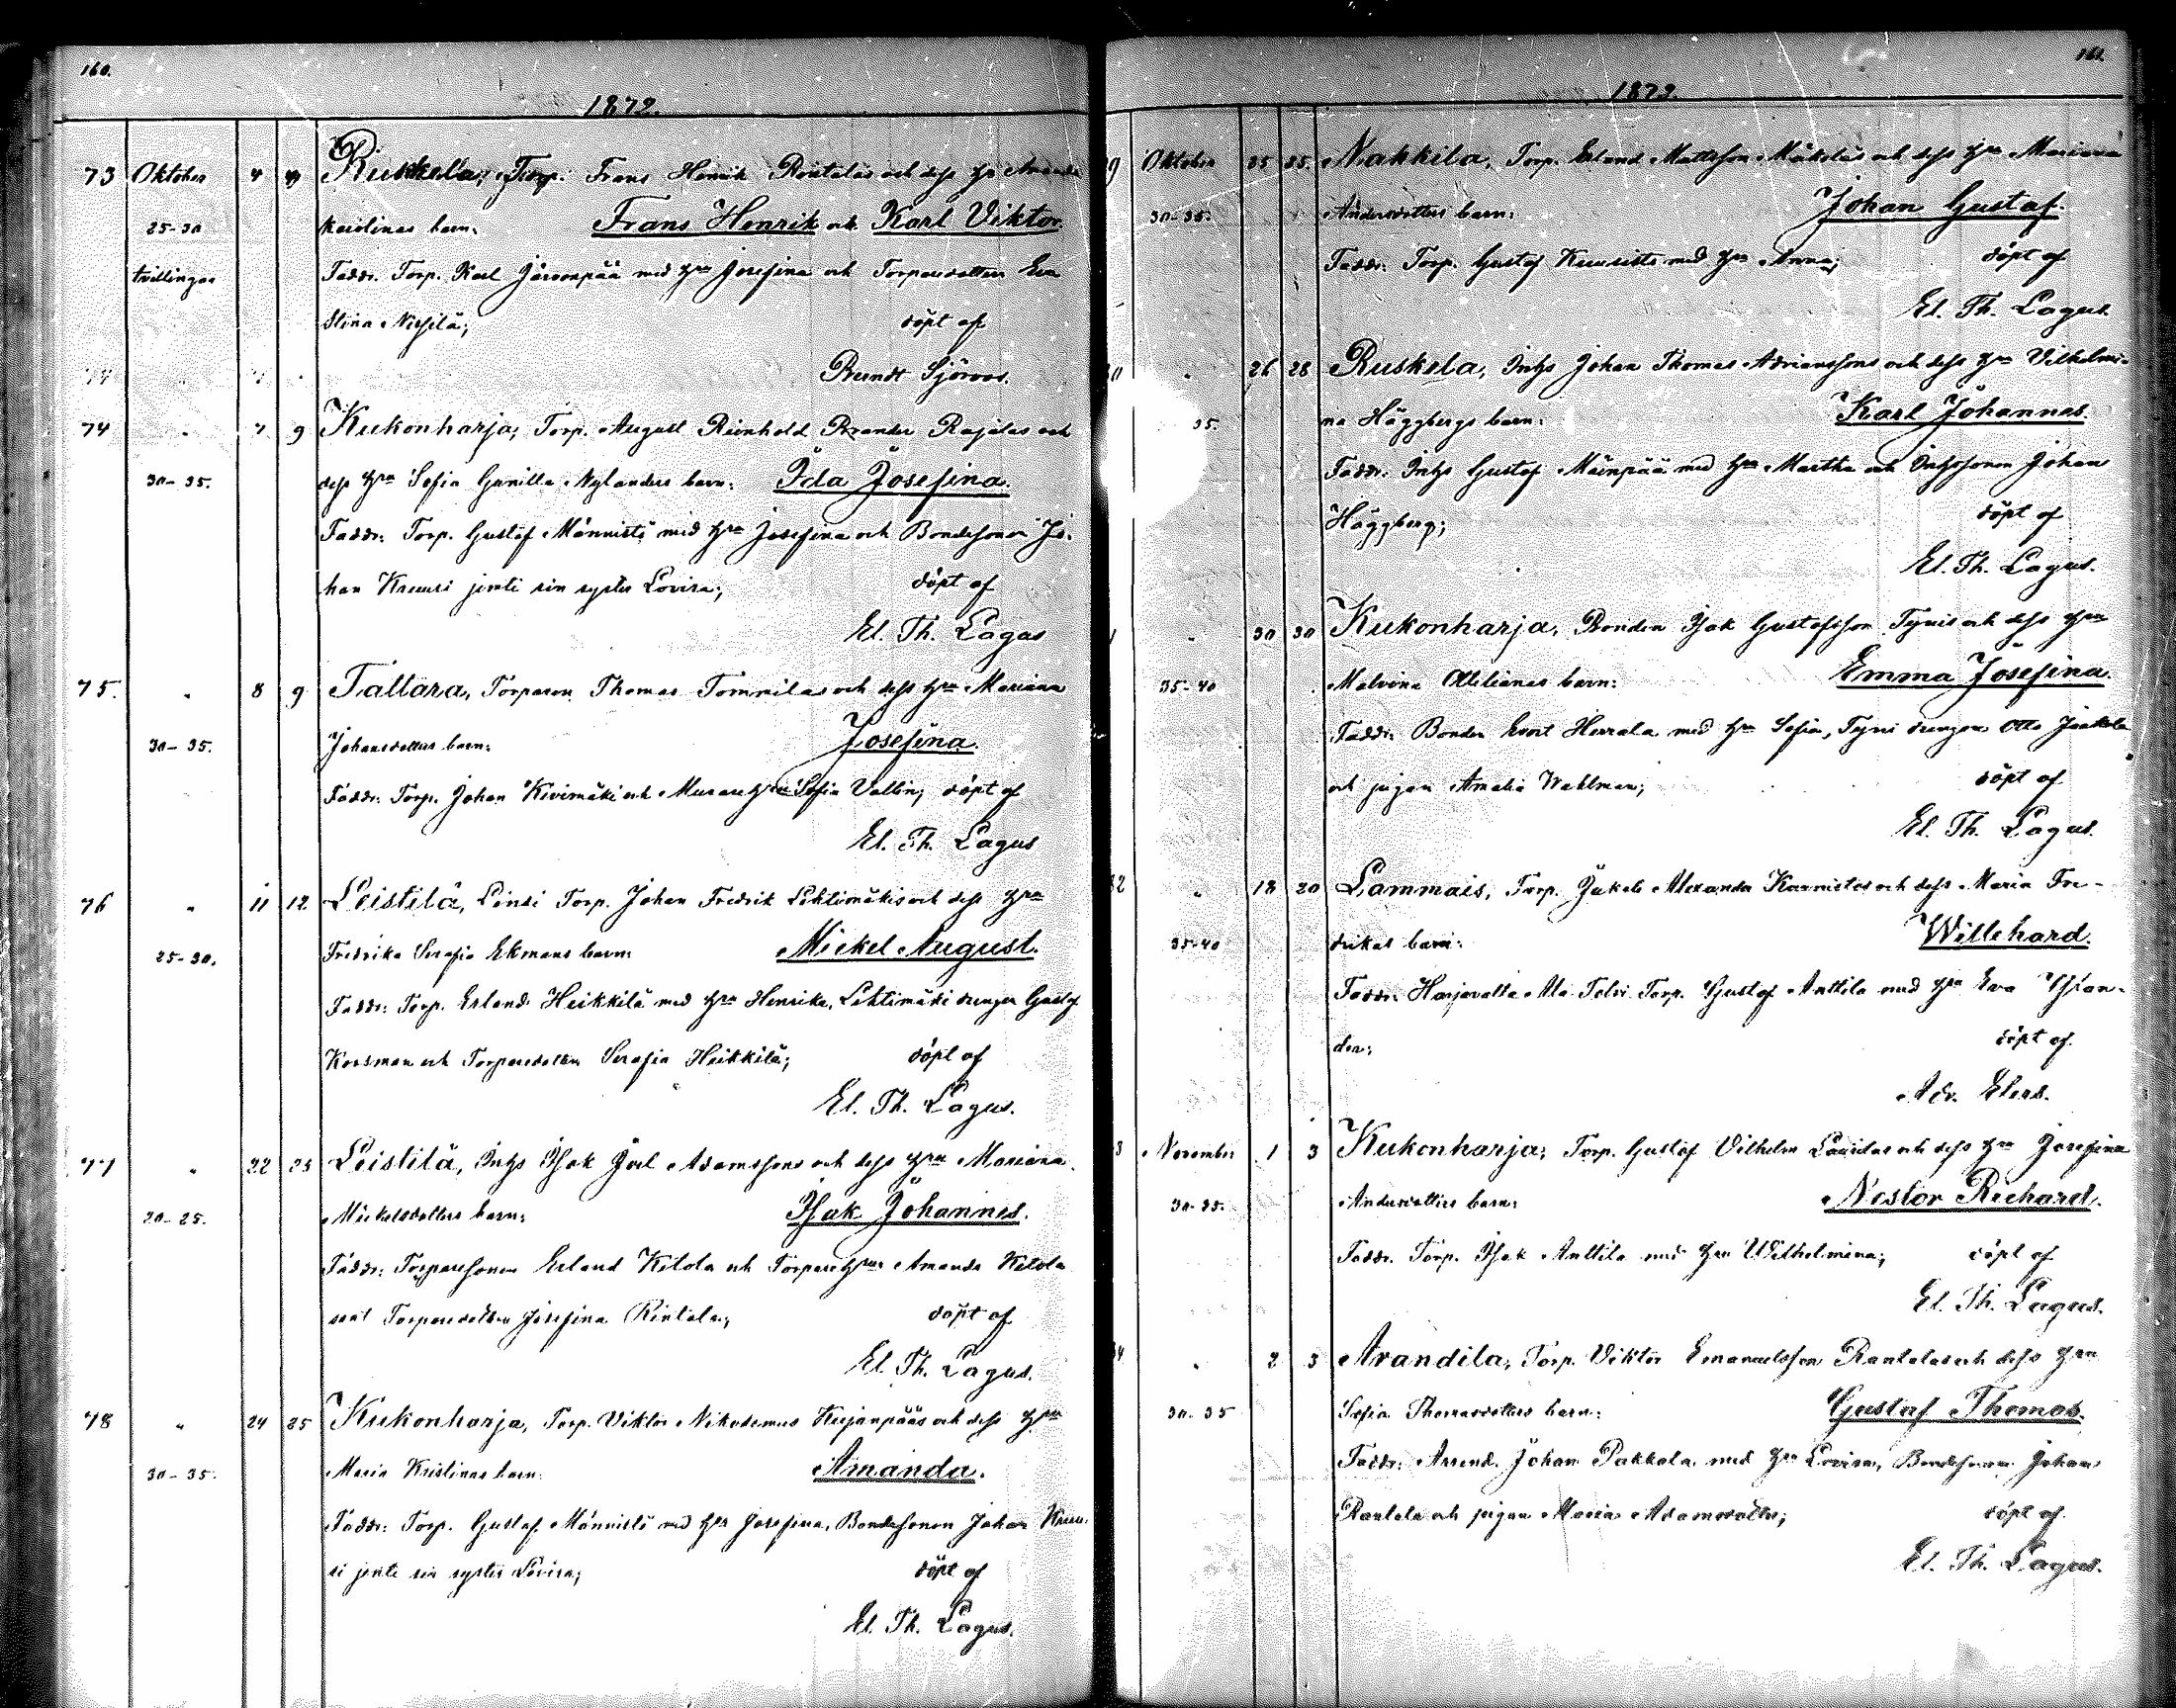 160.
1872.
73 Oktober 4 Ruskella, Torp. Frans Henrik Rintalas och dess hu Amanda
25-30 Karolinas barn: Frans Henrik och Karl Viktor.
tvillingar Faddr. Torp. Karl Järvenpää med hru Josefina och Torparedottern Eva
Stina Nissilä; döpt af
Berndt Sjöroos.
74 " 7 9 Kukonharja, Torp. August Reinhold Brander Rajalas och
30-35. dess hru Sofia Gunilla Nylanders barn: Ida Josefina.
Faddr: Torp. Gustaf Männistö med hru Josefina och Bondesonen Jo-
han Kruusi jemte sin syster Lovisa; döpt af
El. Th. Lagus
75. " 8 9 Tattara, Torparen Thomas Tommilas och dess hru Mariana
30-35. Johansdotters barn: Josefina.
Faddr: Torp. Johan Kivimäki och Murarehru Sofia Vallin; döpt af
El. Th. Lagus
76 " 11 12 Leistilä, Linsi Torp. Johan Fredrik Lehtimäkis och dess hru
25-30. Fredrika Serafia Ekmans barn: Mickel August.
Faddr: Torp. Erland Heikkilä med hru Henrika, Lehtimäki drengen Gustaf
Korsman och Torparedottern Serafia Heikkilä; döpt af
El. Th. Lagus.
77 " 22 23 Leistilä, Inhs Isak Joel Adamssons och dess hru Mariana
20-25. Mickelsdotters barn: Isak Johannes.
Faddr: Torparesonen Erland Kitola och Torparehrun Amanda Kitola
samt Torparedottern Josefina Rintala; döpt af
El. Th. Lagus.
78 " 24 25 Kukonharja, Torp. Viktor Nikodemus Kujanpääs och dess hru
30-35. Maria Kristinas barn: Amanda.
Faddr: Torp. Gustaf Männistö med hru Josefina, Bondesonen Johan Kruu-
si jemte sin syster Lovisa; döpt af
El. Th. Lagus.
161.
1872.
9 Oktober 25 25. Nakkila, Torp. Erland Mattsson Mäkeläs och dess hru Mariana
30-35. Andersdotters barn: Johan Gustaf.
Faddr: Torp. Gustaf Kuusisto med hru Anna; döpt af
El. Th. Lagus.
" 26 28 Ruskela, Inhs Johan Thomas Adrianssons och dess hru Vilhelmi-
35. na Häggbergs barn: Karl Johannes.
Faddr: Inhs Gustaf Mäenpää med hru Martha och Inhssonen Johan
Häggberg; döpt af
El. Th. Lagus.
" 30 30 Kukonharja, Bonden Isak Gustafsson Tynis och dess hru
35-40 Malvina Ottilianas barn: Emma Josefina.
Faddr: Bonden Evert Herrala med hru Sofia, Tyni drengen Otto Jaakola
och pigan Amalia Wahlman; döpt af
El. Th. Lagus.
2 " 18 20 Lammais, Torp. Jakob Alexander Kaunistos och dess Maria Fre-
35-40 drikas barn: Willehard.
Faddr: Harjavalta Ala-Tolvi Torp. Gustaf Anttila med hru Eva
der; döpt af.
Adr. Elers.
3 November 1 3 Kukonharja, Torp. Gustaf Vilhelm Laurilas och dess hru Josefina
30-35. Andersdotters barn: Nestor Richard.
Faddr. Torp. Isak Anttila med hru Wilhelmina; döpt af
El. Th. Lagus.
4 " 2 3 Arandila, Torp. Viktor Emanuelsson Rantalas och dess hru
30-35 Sofia Thomasdotters barn: Gustaf Thomas.
Faddr: Arrend. Johan Pakkala med hru Lovisa, Bondesonen Johan
Rantala och pigan Maria Adamsdotter; döpt af
El. Th. Lagus.